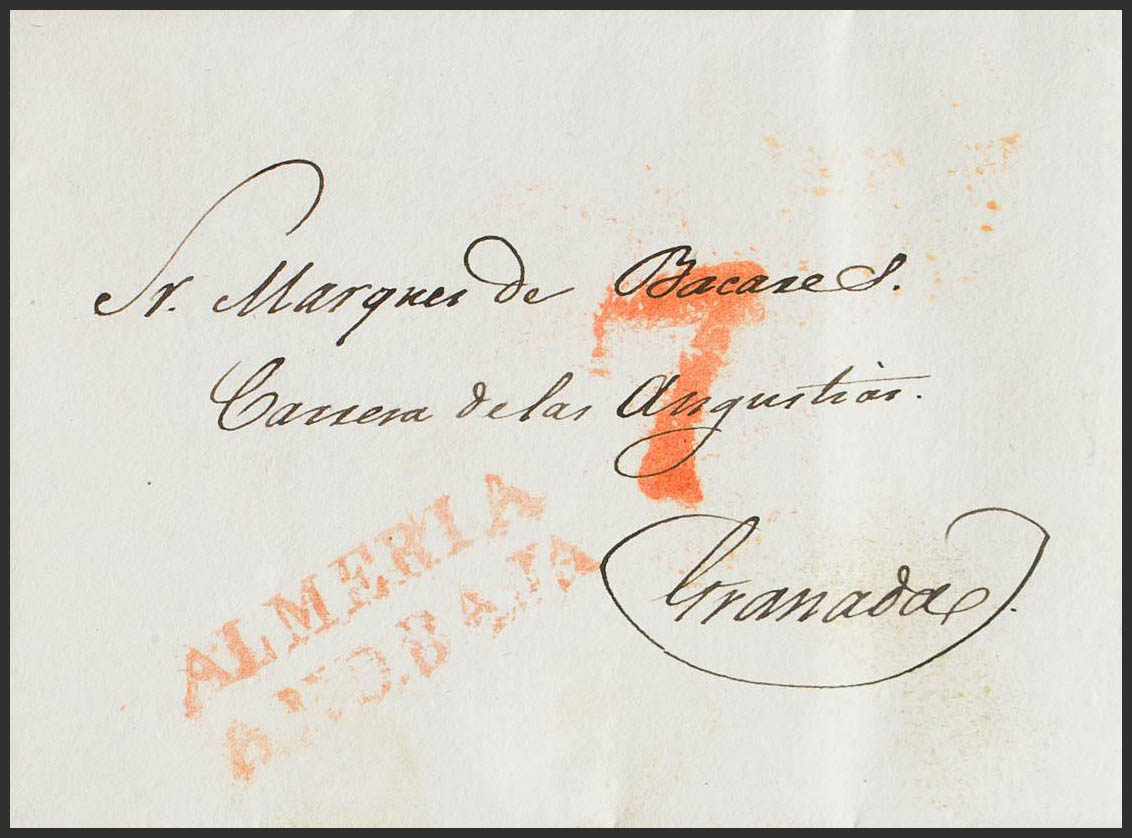 Sr. Marques de Bacares.
7
Carrera de las Angustias.
Granada.
ALMERIA
AND.BAJA